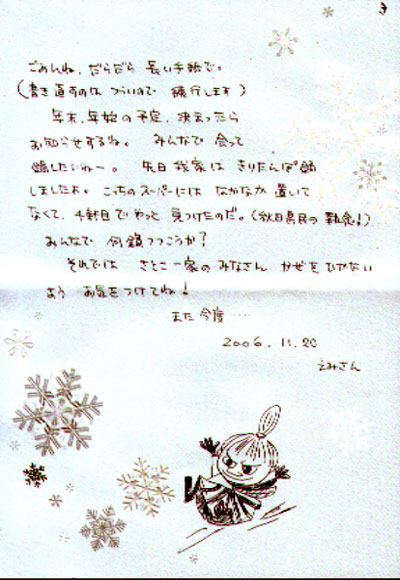 3
ごめんね、だらだら 長い手紙で。
(書き直すのは つらいので 続行します)
年末、年始の予定、決まったら
お知らせするね。 みんなで 会って
鍋したいねー。 先日 我家は きりたんぽ鍋
しましたよ。 こっちのスーパーには なかなか 置いて
なくて、4軒目で やっと 見つけたのだ。(秋田県民の 執念!)
みんなで 何鍋つつこうか?
それでは さとこ一家の みなさん かぜを ひかない
よう お気をつけてね!
また 今度…
2006.11.20
えみさん